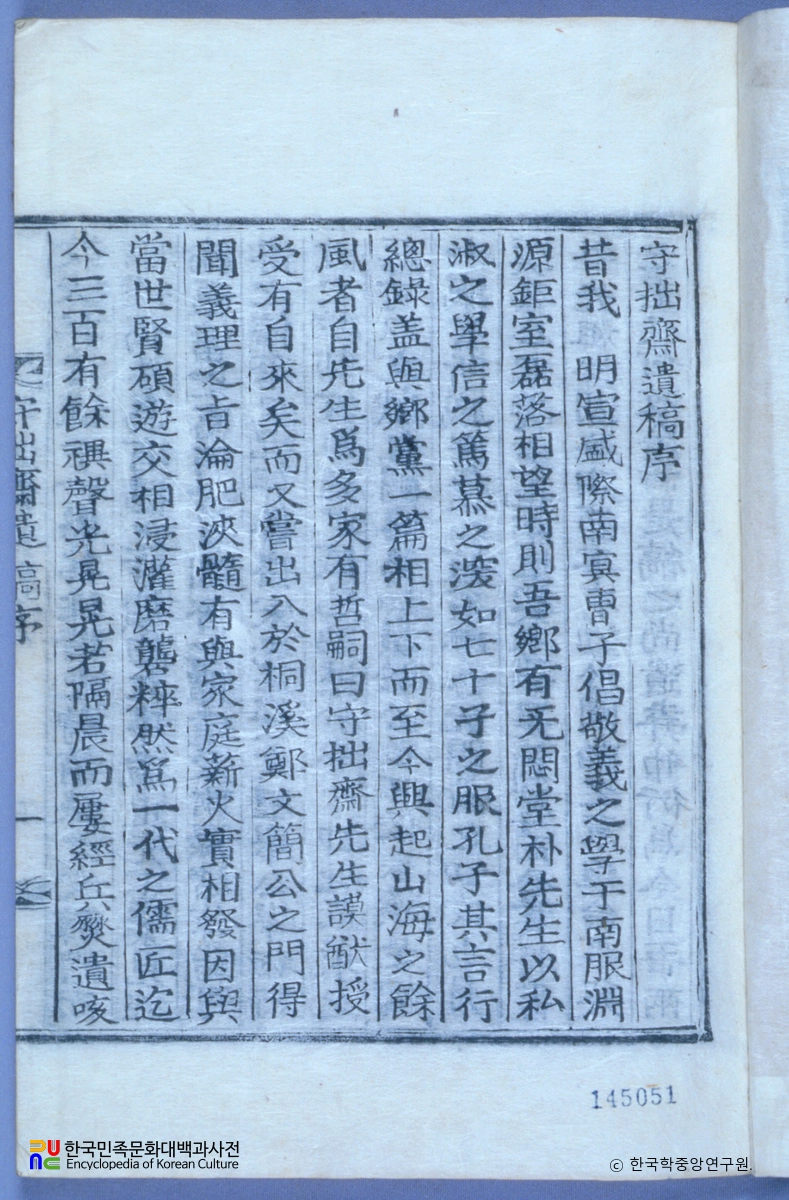 守拙齋遺稿序
昔我 明宣盛際南冥曺子倡敬義之學于南服淵
源鉅室磊落相望時則吾鄕有无悶堂朴先生以私
淑之學信之篤慕之深如七十子之服孔子其言行
總錄盖與鄕黨一篇相上下而至今興起山海之餘
風者自先生爲多家有哲嗣曰守拙齋先生謨猷授
受有自來矣而又嘗出入於桐溪鄭文簡公之門得
聞義理之旨淪肥浹髓有與家庭薪火實相發因與
當世賢碩遊交相浸灌磨礱粹然爲一代之儒匠迄
今三百有餘禩聲光晃晃若隔晨而屢經兵燹遺咳
守拙齋遺稿序
一
145051
한국민족문화대백과사전
Encyclopedia of Korean Culture
© 한국학중앙연구원.